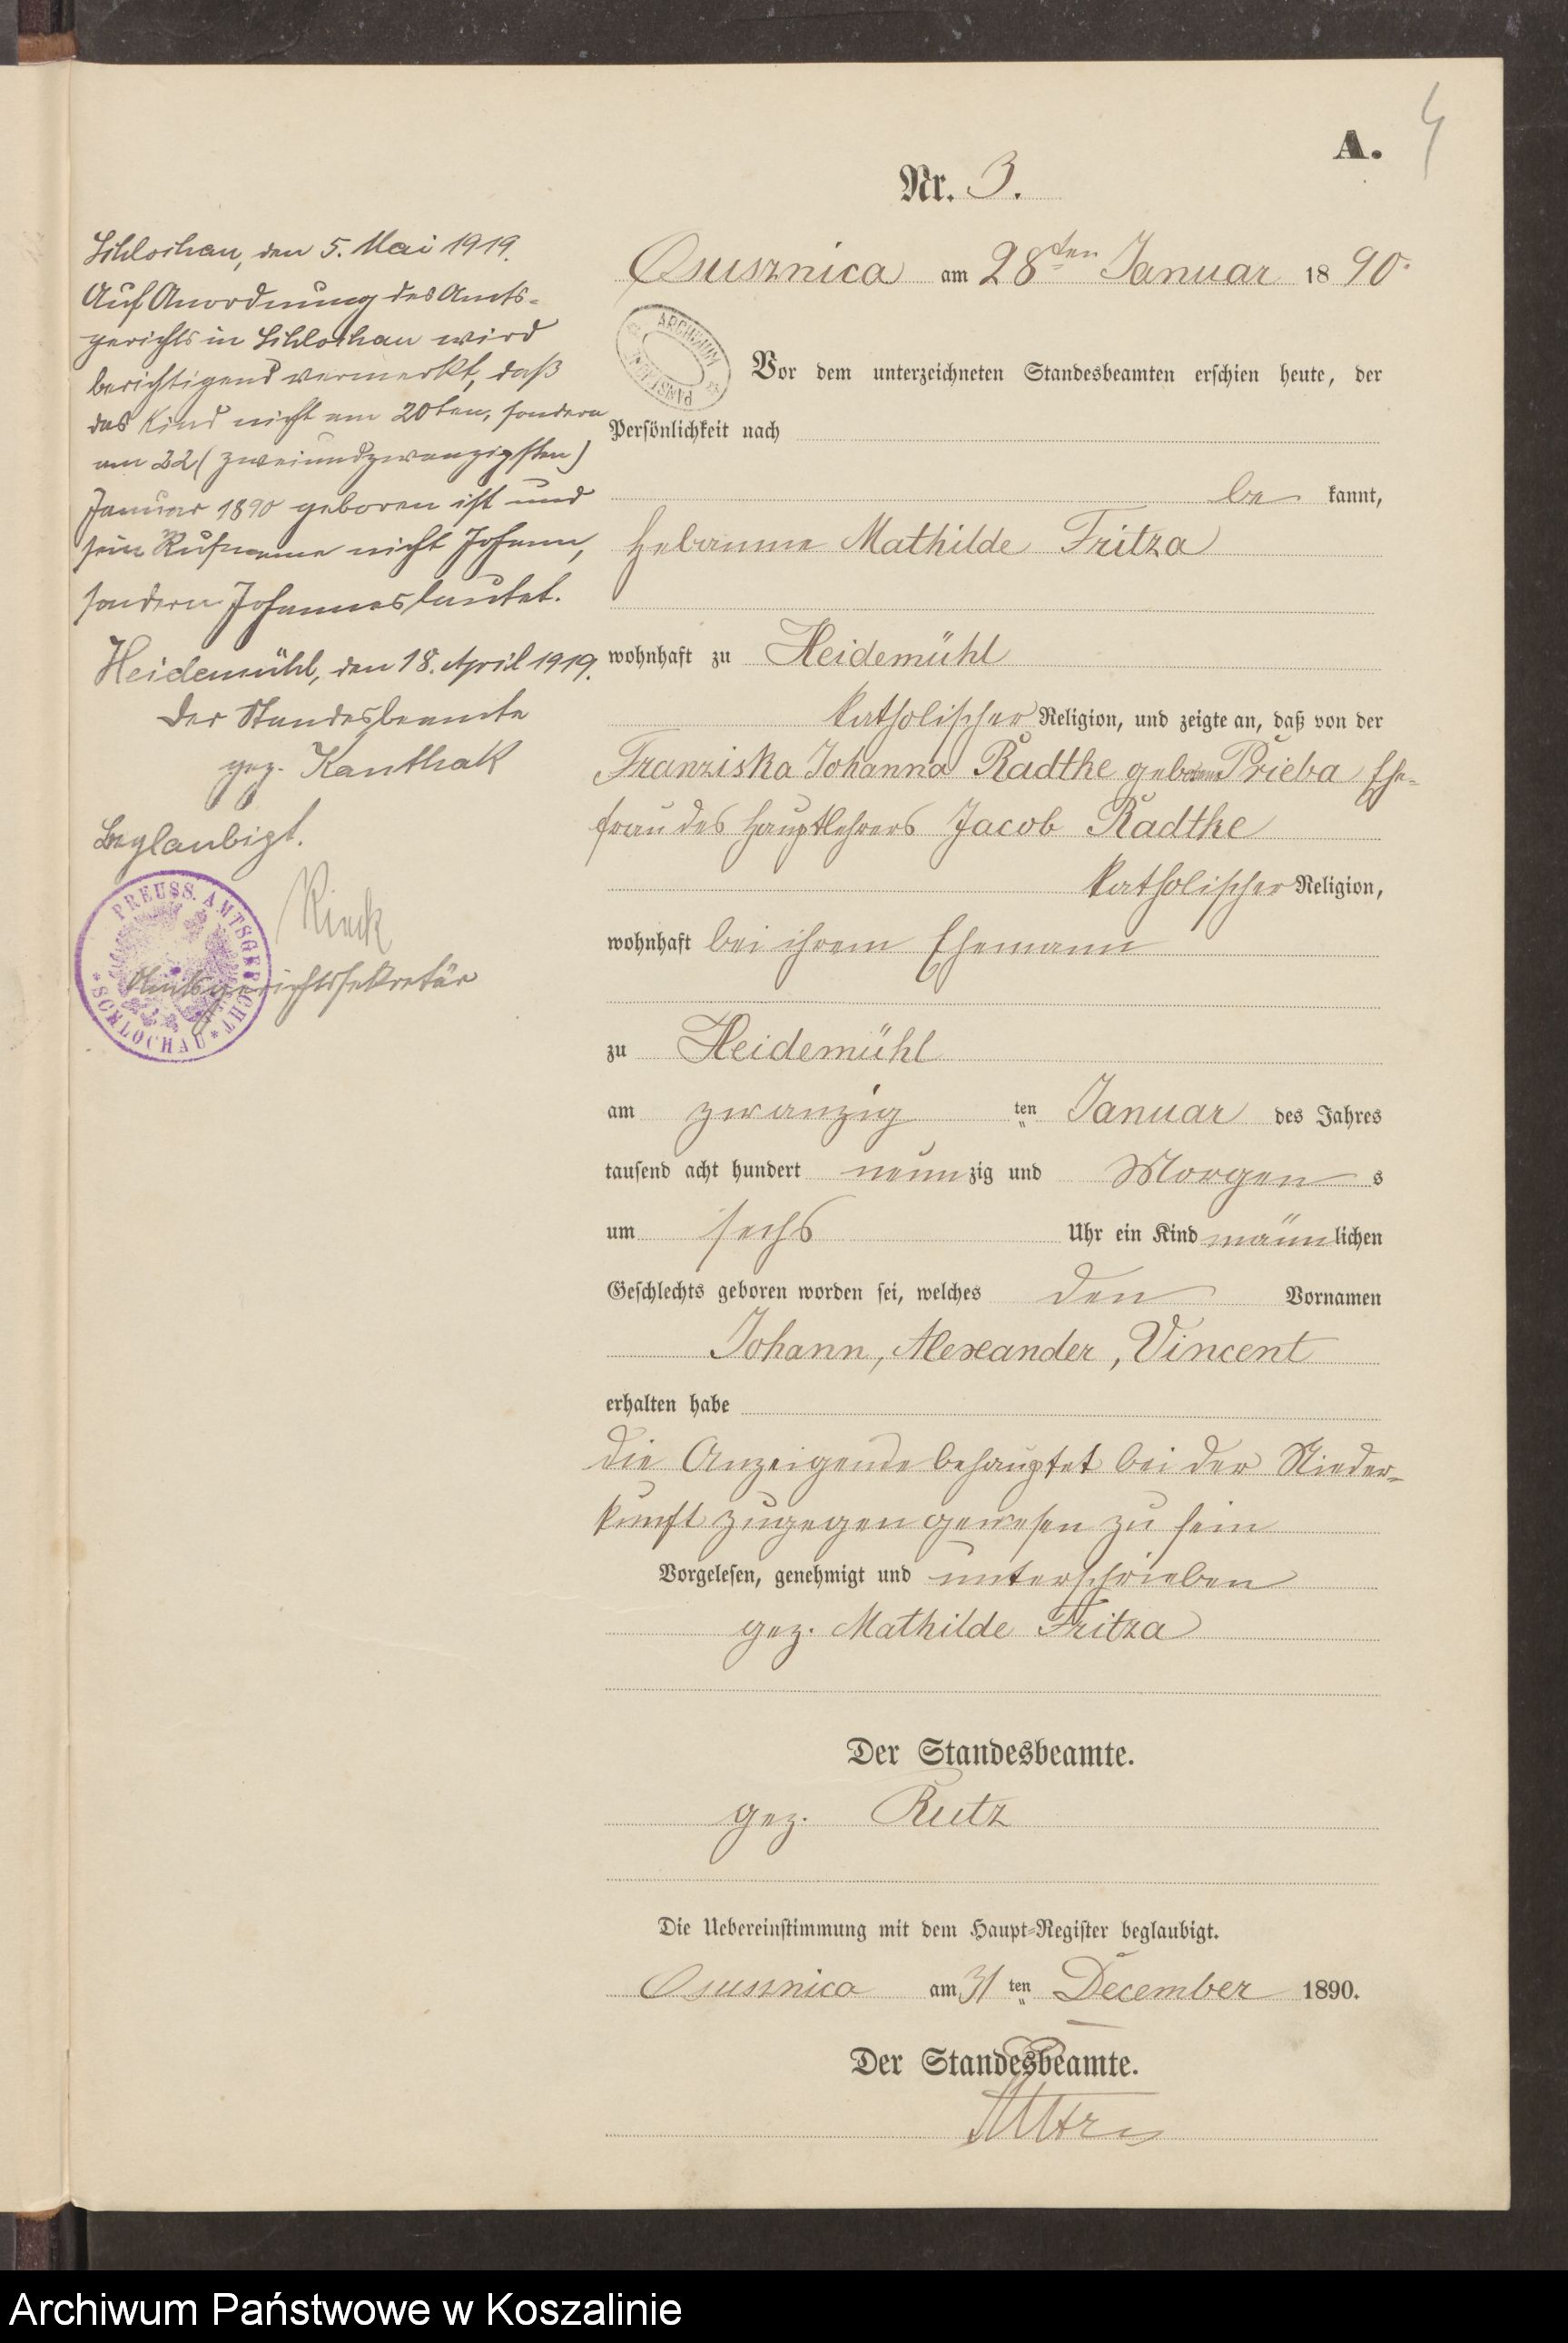 A.
4
Nr. 3.
Schlochau, den 5. Mai 1919.
Auf Anordnung des Amts-
gerichts in Schlochau wird
berichtigend vermerkt, daß
das Kind nicht am 20ten, sondern
am 22 (zweiundzwanzigsten)
Januar 1890 geboren ist und
sein Rufname nicht Johann,
sondern Johannes lautet.
Heidemühl, den 18. April 1919.
Der Standesbeamte
gez. Kanthak
Beglaubigt.
Amtsgerichtssekretär
PREUSS. AMTSGERICHT * SCHLOCHAU *
Osusznica am 28ten Januar 1890.
ARCHIWUM PAŃSTW
Vor dem unterzeichneten Standesbeamten erschien heute, der
Persönlichkeit nach
be kannt,
Hebamme Mathilde Fritza
wohnhaft zu Heidemühl
katholischer Religion, und zeigte an, daß von der
Franziska Johanna Radtke geborene Prieba Ehe-
frau des Hauptlehrers Jacob Radtke
katholischer Religion,
wohnhaft bei ihrem Ehemann
zu Heidemühl
am zwanzig ten Januar des Jahres
tausend acht hundert neunzig und Morgens
um sechs Uhr ein Kind männlichen
Geschlechts geboren worden sei, welches den Vornamen
Johann, Alexander, Vincent
erhalten habe
Die Anzeigende behauptet bei der Nieder-
kunft zugegen gewesen zu sein
Vorgelesen, genehmigt und unterschrieben
gez. Mathilde Fritza
Der Standesbeamte.
gez. Rutz
Die Uebereinstimmung mit dem Haupt-Register beglaubigt.
Osusznica am 31 ten December 1890.
Der Standesbeamte.
Archiwum Państwowe w Koszalinie